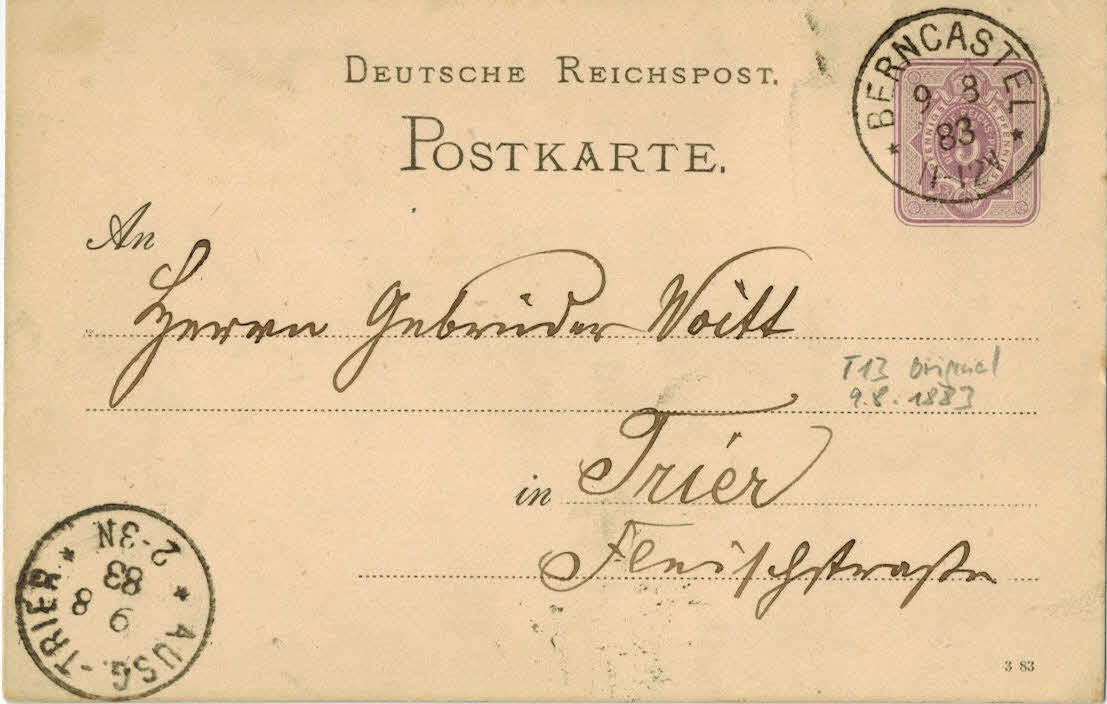 DEUTSCHE REICHSPOST.
POSTKARTE.
BERNCASTEL
9 8
83
11-12V
An
Herren Gebrüder Voitt
T13 Original
9.8.1883
in Trier
Fleischstraße
AUSG.-TRIER
9
8
83
2-3N
3 83